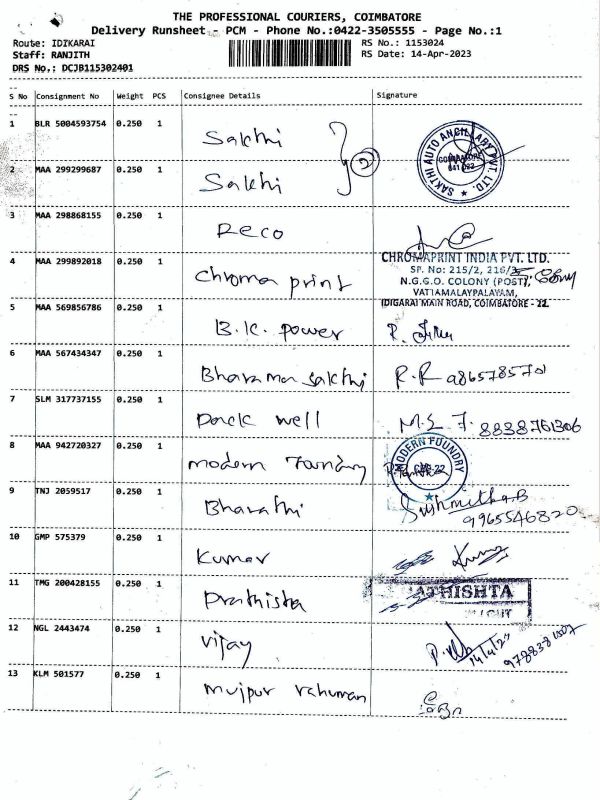 THE PROFESSIONAL COURIERS, COIMBATORE
Delivery Runsheet - PCM - Phone No.:0422-3505555 - Page No.:1
Route: IDIKARAI RS No.: 1153024
Staff: RANJITH RS Date: 14-Apr-2023
DRS No.: DCJB115302401
S No Consignment No Weight PCS Consignee Details Signature
1 BLR 5004593754 0.250 1 Sakthi
SAKTHI AUTO ANCILLARY PVT. LTD.
COIMBATORE
641 022
2 MAA 299299687 0.250 1 Sakthi 2
3 MAA 298868155 0.250 1 Reco
4 MAA 299892018 0.250 1 Chroma print
CHROMAPRINT INDIA PVT. LTD.
SP. No: 215/2, 216/
N.G.G.O. COLONY (POST),
VATTAMALAYPALAYAM,
IDIGARAI MAIN ROAD, COIMBATORE - 22.
5 MAA 569856786 0.250 1 B.K. power
6 MAA 567434347 0.250 1 Bharama sakthi R.R
7 SLM 317737155 0.250 1 Pack well M.S 8838761306
8 MAA 942720327 0.250 1 modern Foundry
MODERN FOUNDRY
CBE-22
9 TNJ 2059517 0.250 1 Bharathi Sushmitha.B
9965546820
10 GMP 575379 0.250 1 Kumar Kumar
11 TMG 200428155 0.250 1 Prathista
ATHISHTA
12 NGL 2443474 0.250 1 Vijay
13 KLM 501577 0.250 1 mujpur rahuman